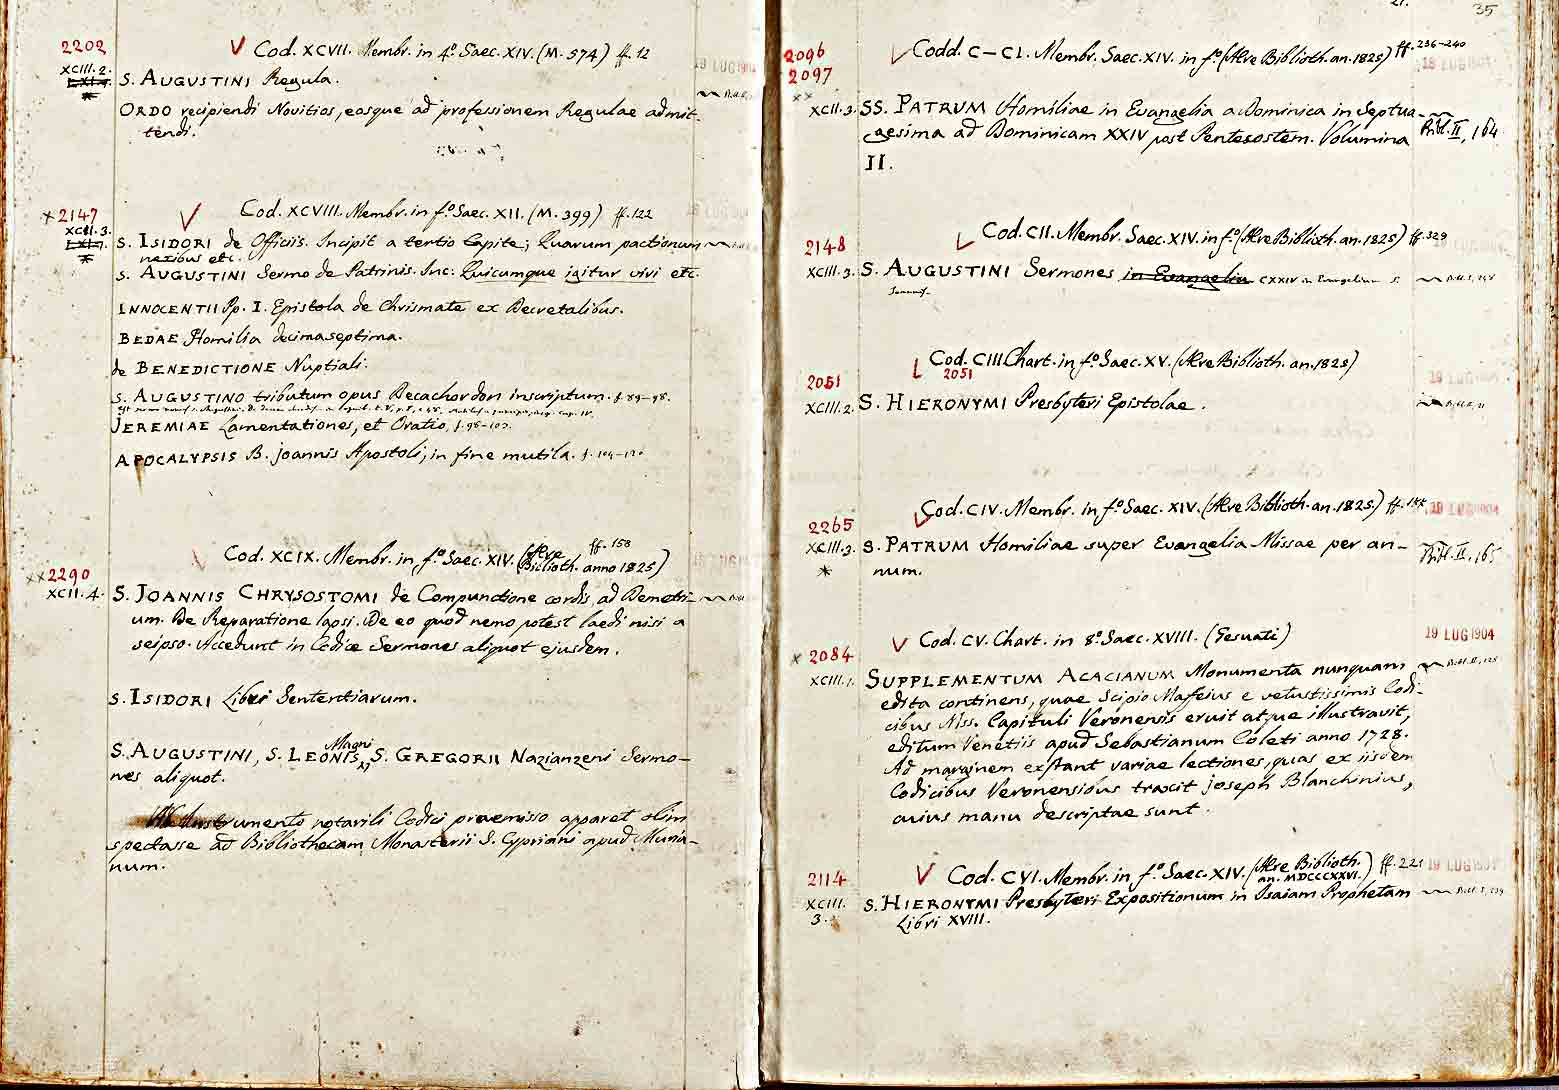 2202
Cod. XCVII. Membr. in 4.º Saec. XIV. (M. 574) ff. 12
XCIII. 2.
S. AUGUSTINI Regula.
ORDO recipiendi Novitios, eosque ad professionem Regulae admit-
tendi.
2147
Cod. XCVIII. Membr. in f.º Saec. XII. (M. 399) ff. 122
XCII. 3.
S. ISIDORI de Officiis. Incipit a tertio Capite; Quarum pactionum
S. AUGUSTINI Sermo de Patrinis. Inc: Quicumque igitur viri etc.
INNOCENTII Pp. I. Epistola de Chrismate ex Decretalibus.
BEDAE Homilia decimaseptima.
de BENEDICTIONE Nuptiali.
S. AUGUSTINO tributum opus Decachordon inscriptum. f. 89-98.
JEREMIAE Lamentationes, et Oratio,
APOCALYPSIS B. Joannis Apostoli, in fine mutila. f. 104-
2290
Cod. XCIX. Membr. in f.º Saec. XIV. (Aere Biblioth. anno 1825) ff. 158
XCII. 4.
S. JOANNIS CHRYSOSTOMI de Compunctione cordis, ad Demetri-
um. De Reparatione lapsi. De eo quod nemo potest laedi nisi a
seipso. Accedunt in Codice Sermones aliquot ejusdem.
S. ISIDORI Libri Sententiarum.
S. AUGUSTINI, S. LEONIS Magni, S. GREGORII Nazianzeni Sermo-
nes aliquot.
Instrumento notarili Codici praemisso apparet olim
spectasse ad Bibliothecam Monasterii S. Cypriani apud Muria-
num.
35
2096
2097
Codd. C-CI. Membr. Saec. XIV. in f.º (Aere Biblioth. an. 1825) ff. 236-240
XCII. 3.
SS. PATRUM Homiliae in Evangelia a Dominica in Septua-
gesima ad Dominicam XXIV post Pentecostem. Volumina
II.
Bibl. II, 164
2148
Cod. CII. Membr. Saec. XIV. in f.º (Aere Biblioth. an. 1825) ff. 329
XCIII. 3.
S. AUGUSTINI Sermones in Evangelia CXXIV in Evangelium S.
Joannis.
Cod. CIII Chart. in f.º Saec. XV. (Aere Biblioth. an. 1825)
2051
2051
XCIII. 2.
S. HIERONYMI Presbyteri Epistolae.
2265
Cod. CIV. Membr. in f.º Saec. XIV. (Aere Biblioth. an. 1825)
19 LUG 1904
XCIII. 3.
S. PATRUM Homiliae super Evangelia Missae per an-
num.
Bibl. II, 165
2084
Cod. CV. Chart. in 8.º Saec. XVIII. (Gesuati)
19 LUG 1904
XCIII. 1.
SUPPLEMENTUM ACACIANUM Monumenta nunquam
edita continens, quae Scipio Maffeius e vetustissimis Codi-
cibus Mss. Capituli Veronensis eruit atque illustravit,
editum Venetiis apud Sebastianum Coleti anno 1728.
Ad marginem exstant variae lectiones, quas ex iisdem
Codicibus Veronensibus traxit Joseph Blanchinius,
cuius manu descriptae sunt.
2114
Cod. CVI. Membr. in f.º Saec. XIV. (Aere Biblioth. an. MDCCCXXVI.) ff. 221
XCIII.
3.
S. HIERONYMI Presbyteri Expositionum in Isaiam Prophetam
Libri XVIII.